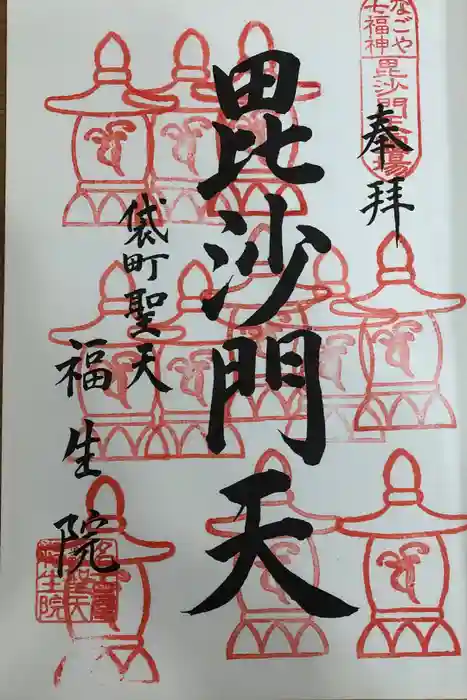 なごや
七福神
毘沙門天霊場
奉拝
毘沙門天
袋町聖天
福生院